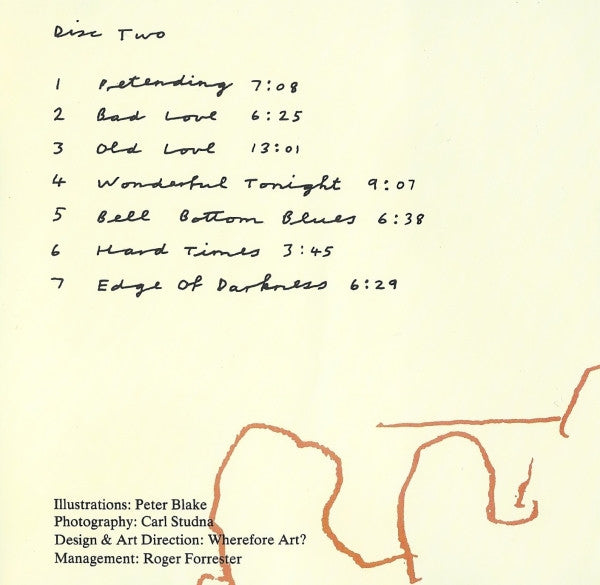 Disc Two
1 Pretending 7:08
2 Bad Love 6:25
3 Old Love 13:01
4 Wonderful Tonight 9:07
5 Bell Bottom Blues 6:38
6 Hard Times 3:45
7 Edge Of Darkness 6:29
Illustrations: Peter Blake
Photography: Carl Studna
Design & Art Direction: Wherefore Art?
Management: Roger Forrester